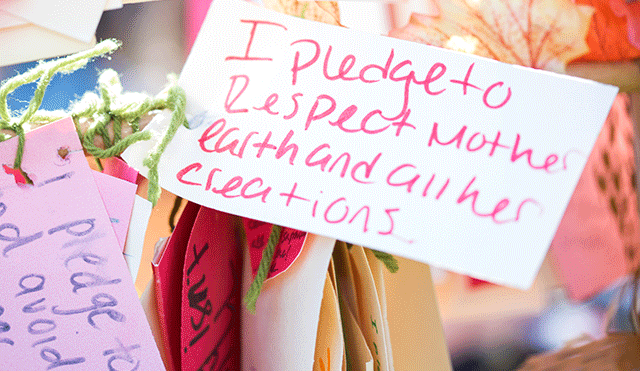 I pledge to
Respect Mother
earth and all her
creations.
I pledge to
avoid
I wish